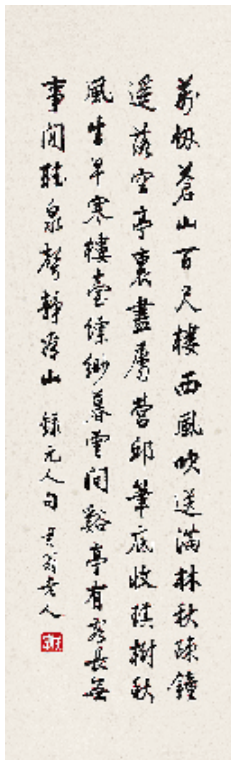 萬仞蒼山百尺樓西風吹送滿林秋疎鐘
遥落空亭裏盡屬營邱筆底收琪樹秋
風生早寒樓臺縹緲暮雲間谿亭有客長無
事閒聽泉聲靜看山 錄元人句 翁老人